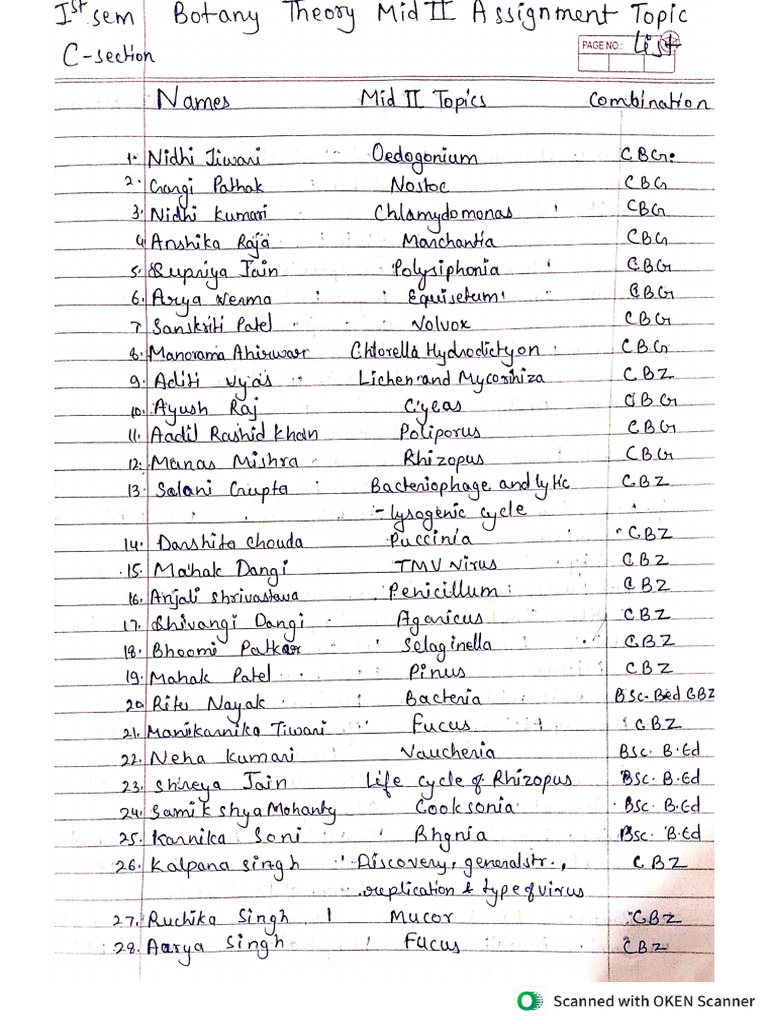 Ist sem Botany Theory Mid II Assignment Topic
C-section List
PAGE NO.:
Names Mid II Topics Combination
1. Nidhi Tiwari Oedogonium CBG.
2. Gargi Pathak Nostoc CBG
3. Nidhi Kumari Chlamydomonas CBG
4. Anshika Raja Marchantia CBG
5. Supriya Jain Polysiphonia CBG
6. Arya Verma Equisetum CBG
7. Sanskriti Patel Volvox CBG
8. Manorama Ahirwar Chlorella Hydrodictyon CBG
9. Aditi Vyas Lichen and Mycorrhiza CBZ
10. Ayush Raj Cycas CBG
11. Aadil Rashid Khan Poliporus CBG
12. Manas Mishra Rhizopus CBG
13. Salani Gupta Bacteriophage and lytic CBZ
- lysogenic cycle
14. Darshita Chouda Puccinia CBZ
15. Mahak Dangi TMV Virus CBZ
16. Anjali Shrivastava Penicillum CBZ
17. Shivangi Dangi Agaricus CBZ
18. Bhoomi Patkar Selaginella CBZ
19. Mahak Patel Pinus CBZ
20 Ritu Nayak Bacteria BSc. Bed CBZ
21. Manikarnika Tiwari Fucus CBZ
22. Neha Kumari Vaucheria BSc. B.Ed
23. Shreya Jain Life cycle of Rhizopus BSc. B.Ed
24. Samikshya Mohanty Cooksonia BSc. B.Ed
25. Karnika Soni Rhynia BSc. B.Ed
26. Kalpana Singh Discovery, general str., CBZ
replication & type of virus
27. Ruchika Singh Mucor CBZ
28. Aarya Singh Fucus CBZ
Scanned with OKEN Scanner